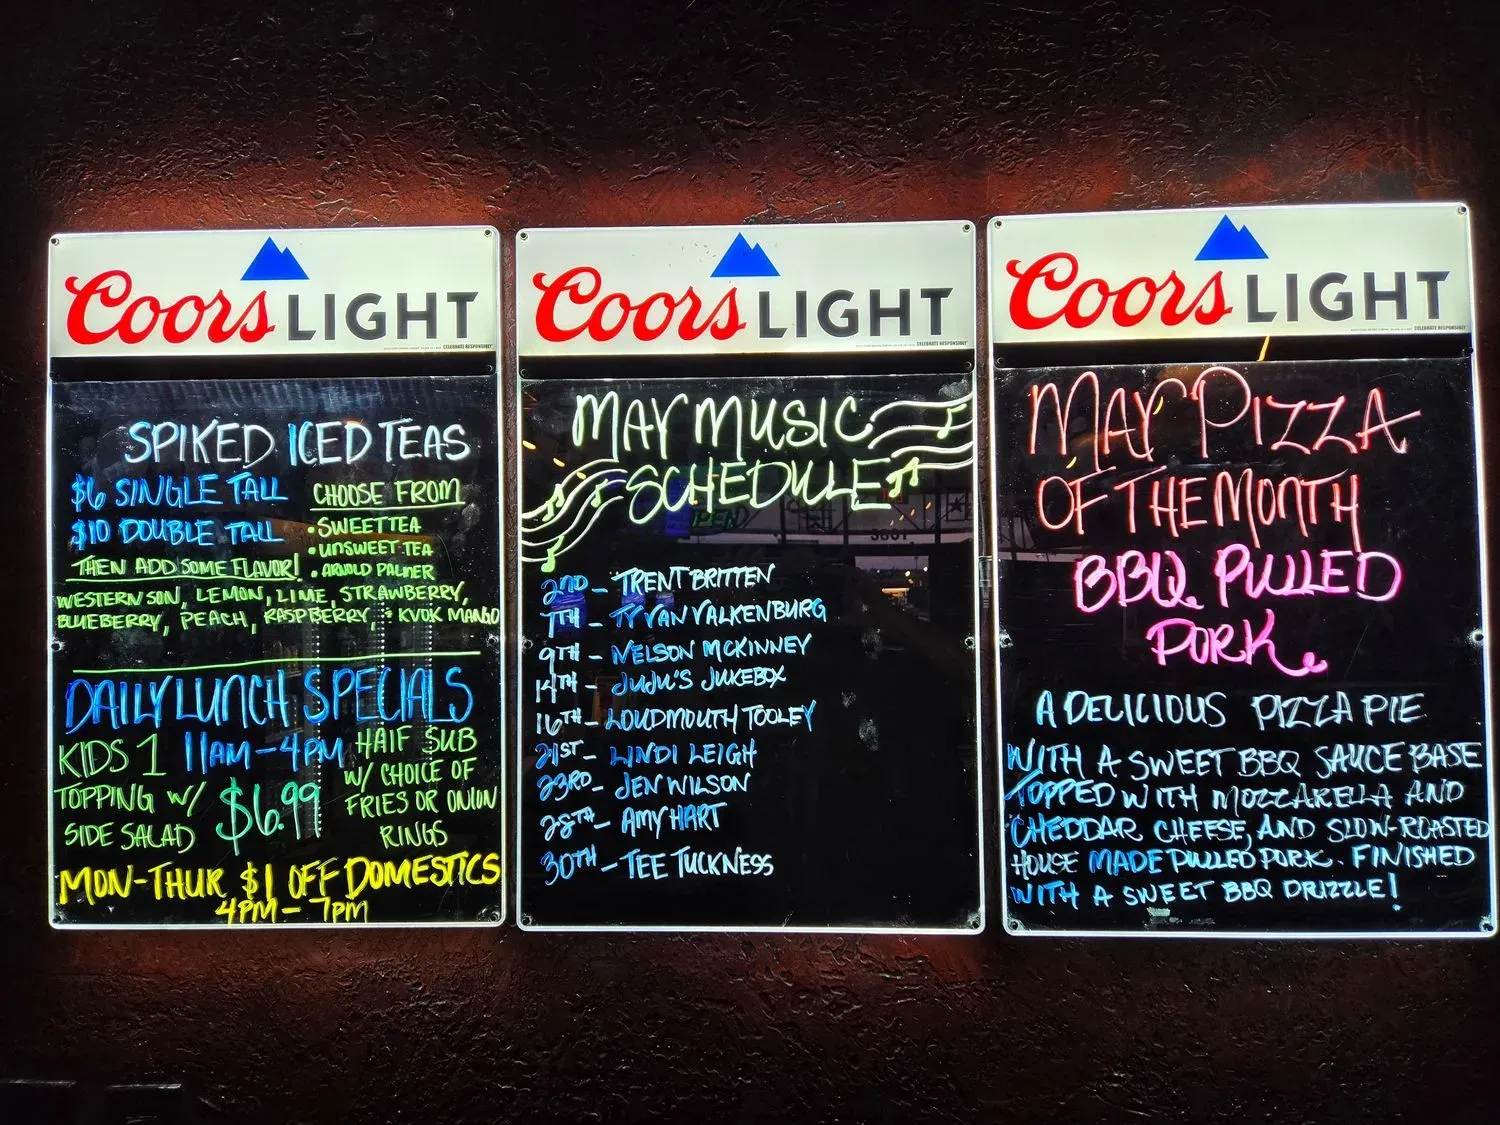 Coors LIGHT
CELEBRATE RESPONSIBLY
SPIKED ICED TEAS
$6 SINGLE TALL
$10 DOUBLE TALL
CHOOSE FROM
• SWEET TEA
• UNSWEET TEA
• ARNOLD PALMER
THEN ADD SOME FLAVOR!
WESTERN SON, LEMON, LIME, STRAWBERRY,
BLUEBERRY, PEACH, RASPBERRY, + KVOK MANGO
DAILY LUNCH SPECIALS
11AM-4PM
KIDS 1
TOPPING W/
SIDE SALAD
$6.99
HALF SUB
W/ CHOICE OF
FRIES OR ONION
RINGS
MON-THUR $1 OFF DOMESTICS
4PM - 7PM
Coors LIGHT
CELEBRATE RESPONSIBLY
MAY MUSIC
SCHEDULE
OPEN
2ND - TRENT BRITTEN
7TH - TY VAN VALKENBURG
9TH - NELSON MCKINNEY
14TH - JUJU'S JUKEBOX
16TH - LOUDMOUTH TOOLEY
21ST - LINDI LEIGH
23RD - JEN WILSON
28TH - AMY HART
30TH - TEE TUCKNESS
Coors LIGHT
CELEBRATE RESPONSIBLY
MAY PIZZA
OF THE MONTH
BBQ PULLED
PORK
A DELICIOUS PIZZA PIE
WITH A SWEET BBQ SAUCE BASE
TOPPED WITH MOZZARELLA AND
CHEDDAR CHEESE, AND SLOW-ROASTED
HOUSE MADE PULLED PORK. FINISHED
WITH A SWEET BBQ DRIZZLE!